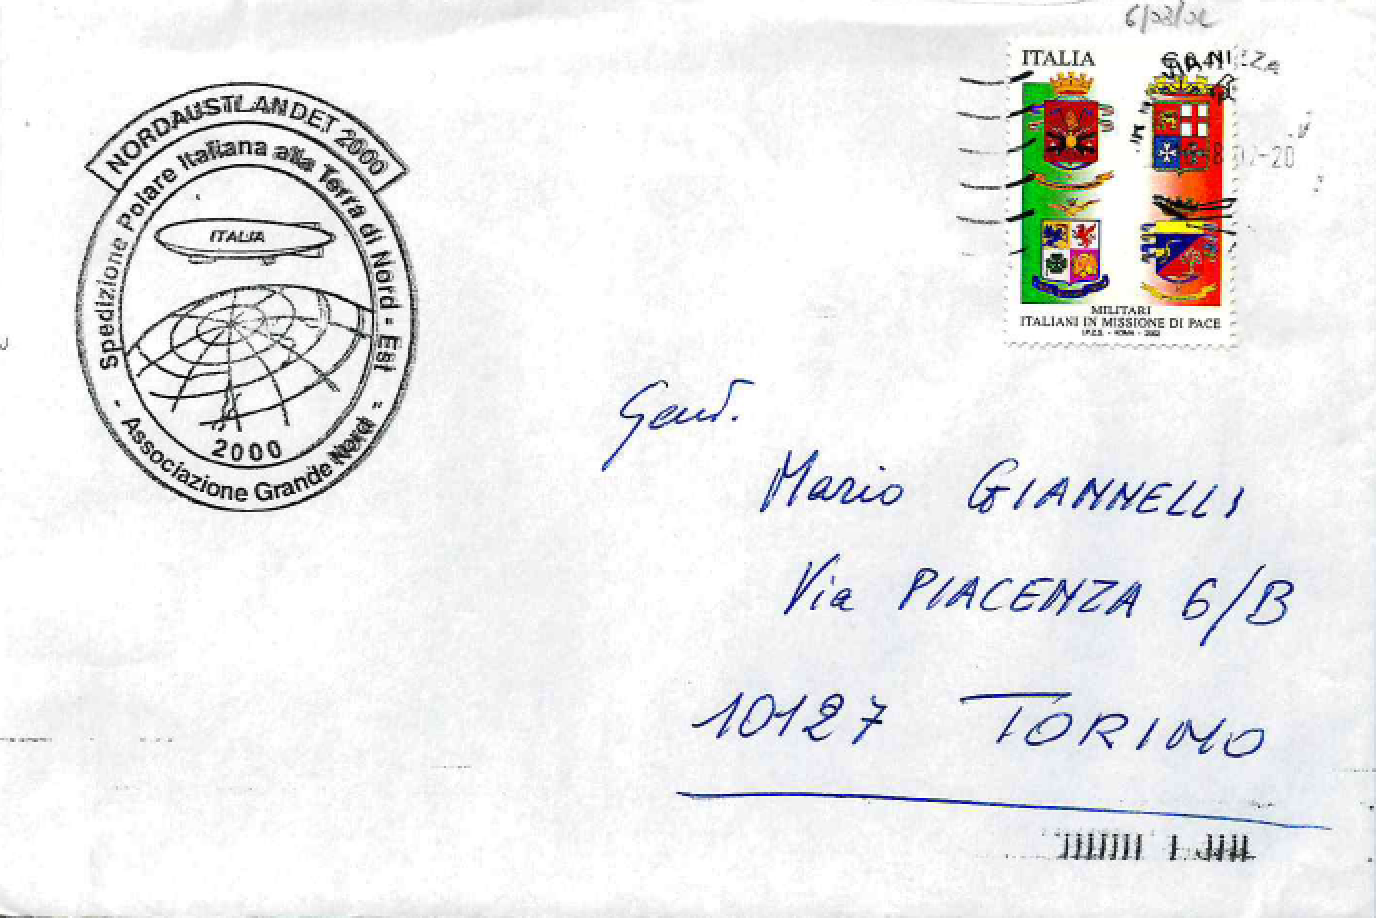 6/08/02
ITALIA
MILITARI
ITALIANI IN MISSIONE DI PACE
I.P.Z.S. - ROMA - 2002
8 02-20
NORDAUSTLANDET 2000
Spedizione Polare Italiana alla Terra di Nord-Est
ITALIA
2000
- Associazione Grande Nord -
Gent.
Mario GIANNELLI
Via PIACENZA 6/B
10127 TORINO